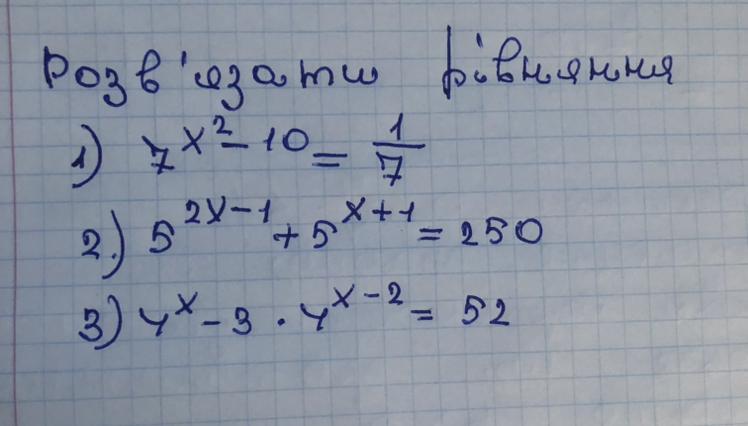 Розв'язати рівняння
1) 7^{x^2-10} = \frac{1}{7}
2.) 5^{2x-1} + 5^{x+1} = 250
3) 4^x - 3 · 4^{x-2} = 52